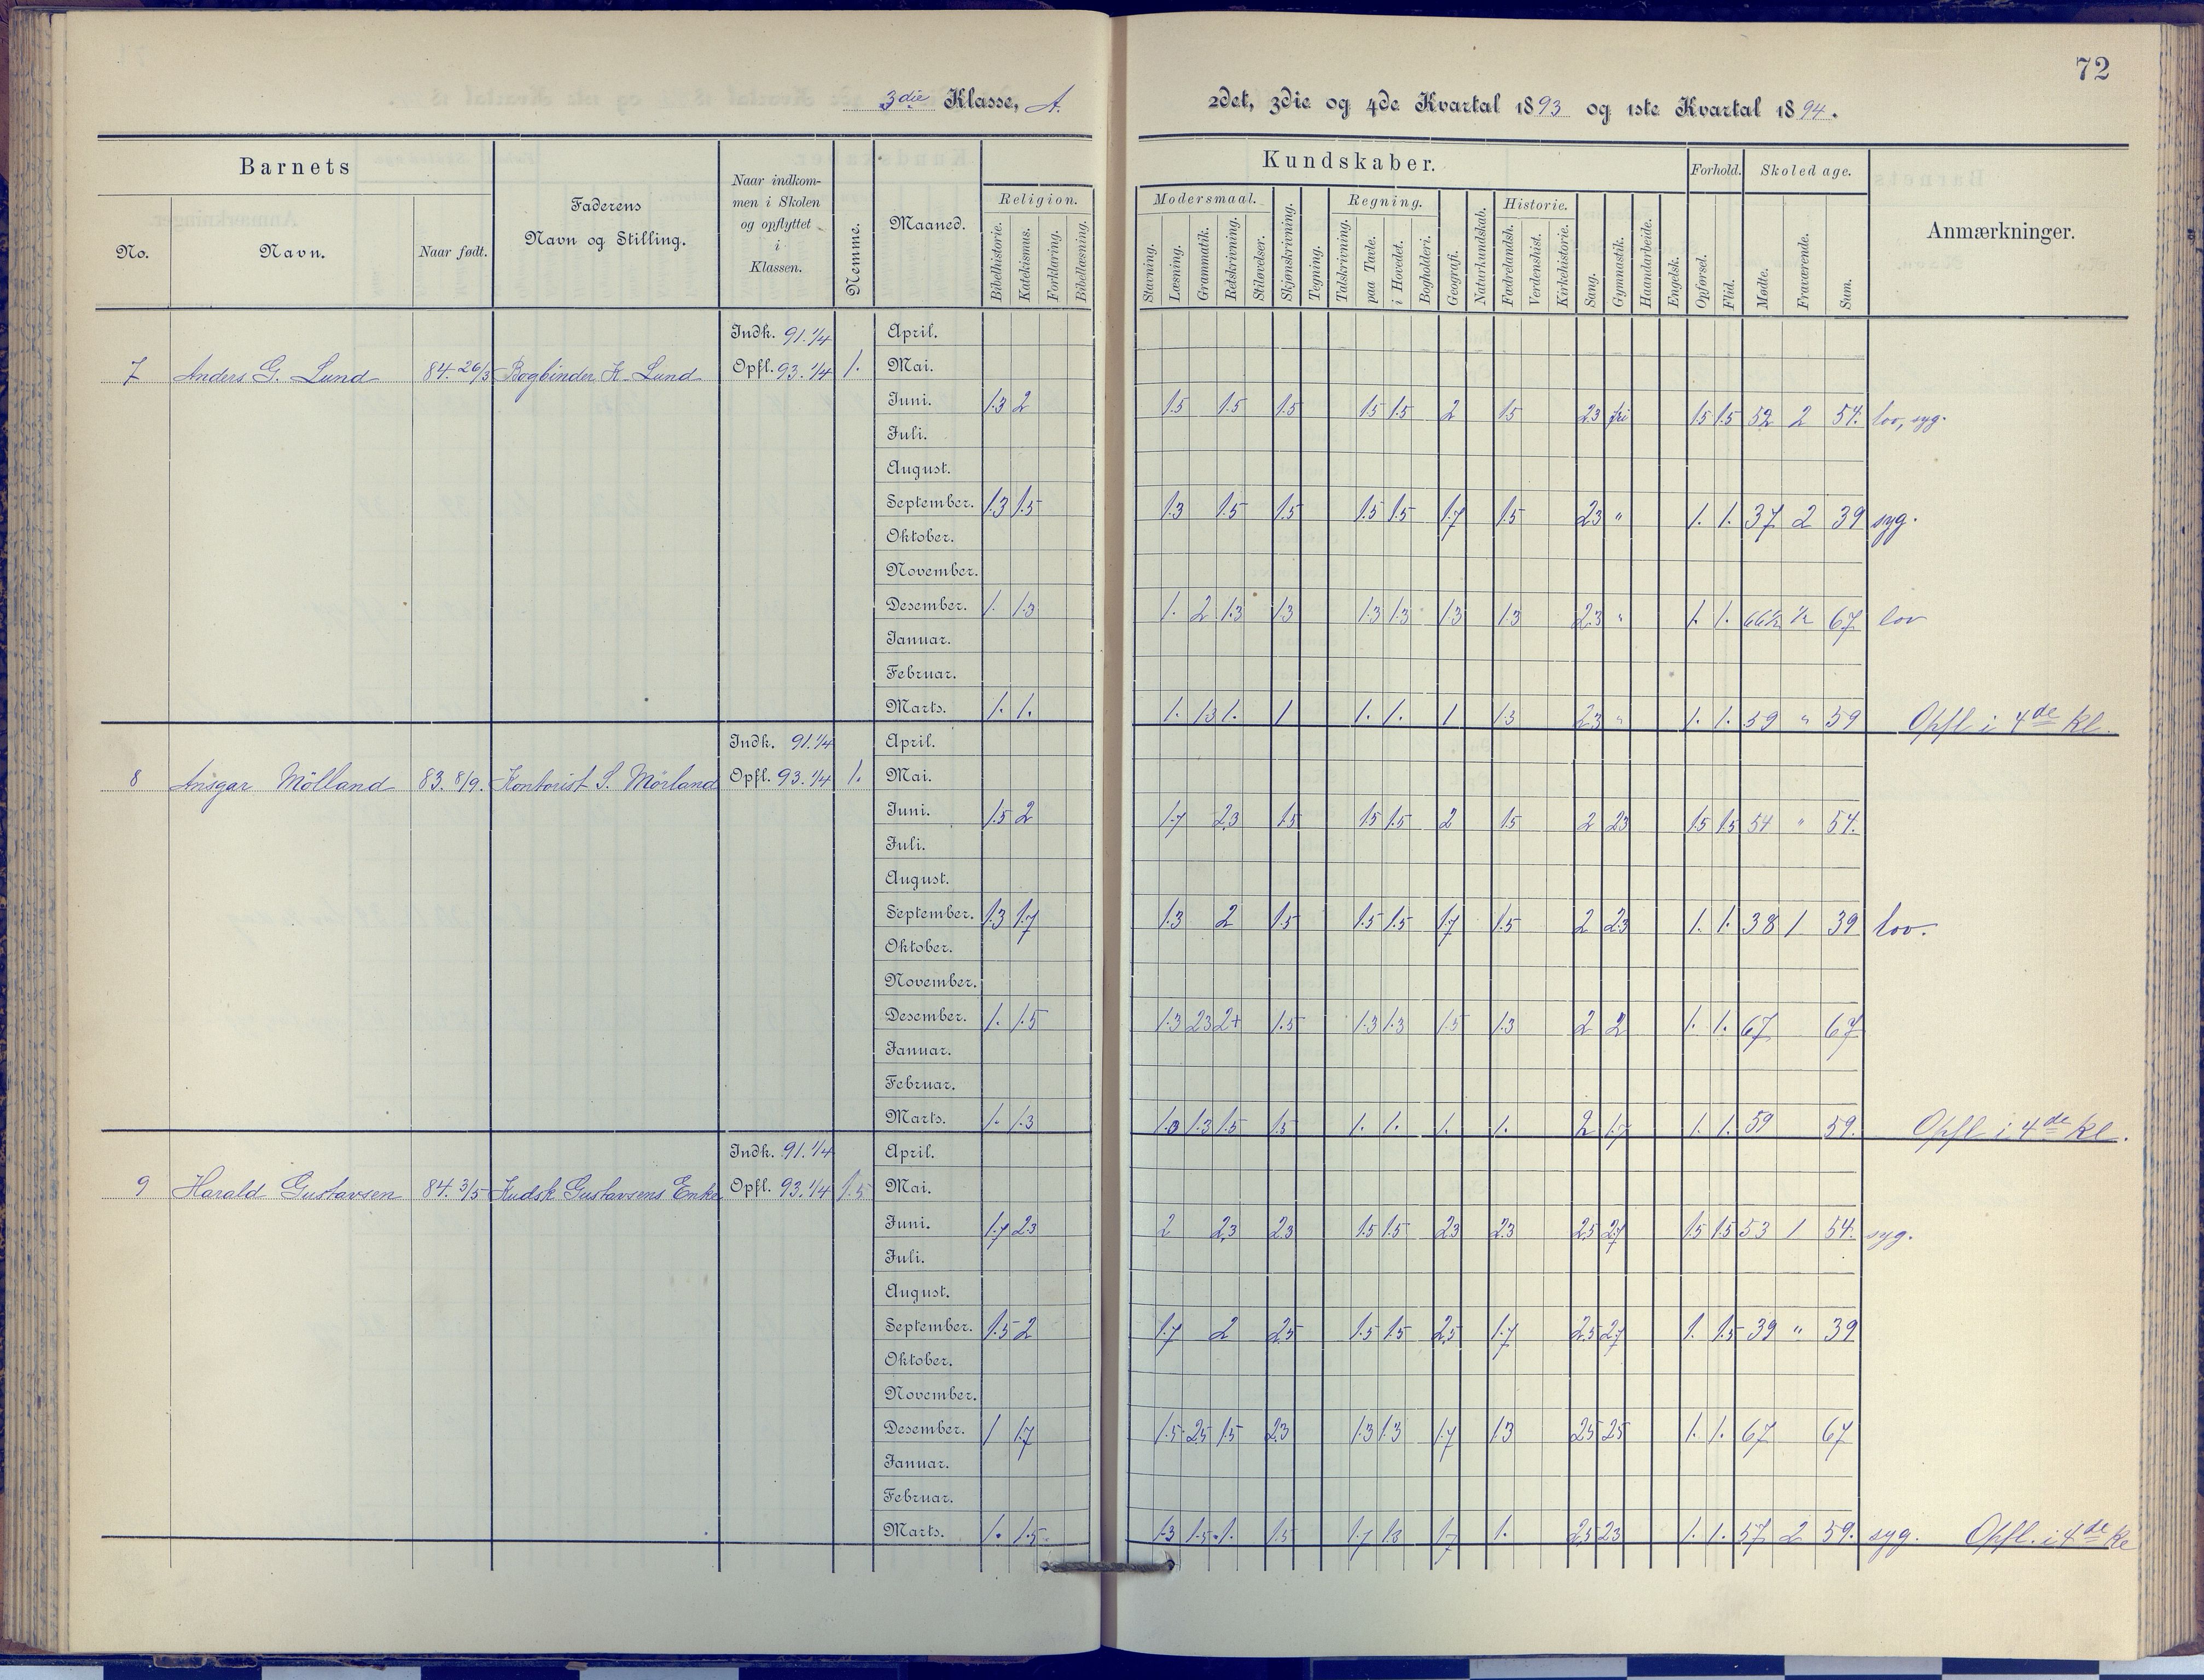 72
3die Klasse, A.
2det, 3die og 4de Kvartal 1893 og 1ste Kvartal 1894.
Barnets
No.
Navn.
Naar født.
Faderens
Navn og Stilling.
Naar indkom-
men i Skolen
og opflyttet
i
Klassen.
Nemme.
Maaned.
Kundskaber.
Religion.
Bibelhistorie.
Katekismus.
Forklaring.
Bibellæsning.
Modersmaal.
Stavning.
Læsning.
Grammatik.
Retskrivning.
Stiløvelser.
Skjønskrivning.
Tegning.
Regning.
Talskrivning.
paa Tavle.
i Hovedet.
Bogholderi.
Geografi.
Naturkundskab.
Historie.
Fædrelandsh.
Verdenshist.
Kirkehistorie.
Sang.
Gymnastik.
Haandarbeide.
Engelsk.
Forhold.
Opførsel.
Flid.
Skoledage.
Mødte.
Fraværende.
Sum.
Anmærkninger.
Indk. 91.1/4 April.
7 Anders G. Lund 84.26/3 Bogbinder K. Lund Opfl. 93.1/4 1. Mai.
Juni. 1.3 2 1.5 1.5 1.5 1.5 1.5 2 1.5 2.3 fri 1.5 1.5 52 2 54. lov, syg.
Juli.
August.
September. 1.3 1.5 1.3 1.5 1.5 1.5 1.5 1.7 1.5 2.3 " 1. 1. 37 2 39 syg.
Oktober.
November.
Desember. 1. 1.3 1. 2 1.3 1.3 1.3 1.3 1.3 1.3 2.3 " 1. 1. 66½ ½ 67 lov
Januar.
Februar.
Marts. 1. 1. 1. 1.3 1. 1 1. 1. 1 1.3 2.3 " 1. 1. 59 " 59 Opfl i 4de Kl.
Indk. 91.1/4 April.
8 Ansgar Mölland 83.8/9. Kontorist S. Mörland Opfl. 93.1/4 1. Mai.
Juni. 1.5 2 1.7 2.3 1.5 1.5 1.5 2 1.5 2 2.3 1.5 1.5 54 " 54.
Juli.
August.
September. 1.3 1.7 1.3 2 1.5 1.5 1.5 1.7 1.5 2 2.3 1. 1. 38 1 39 lov.
Oktober.
November.
Desember. 1. 1.5 1.3 2.3 2+ 1.5 1.3 1.3 1.5 1.3 2 2 1. 1. 67 67
Januar.
Februar.
Marts. 1. 1.3 1.3 1.5 1.5 1. 1. 1. 1. 2 1.7 1. 1. 59 59. Opfl i 4de Kl.
Indk. 91.1/4 April.
9 Harald Gustavsen 84.3/5 Kudsk Gustavsens Enke Opfl. 93.1/4 1.5 Mai.
Juni. 1.7 2.3 2 2.3 2.3 1.5 1.5 2.3 2.3 2.5 2.7 1.5 1.5 53 1 54. syg.
Juli.
August.
September. 1.5 2 1.7 2 2.5 1.5 1.5 2.5 1.7 2.5 2.7 1. 1.5 39 " 39
Oktober.
November.
Desember. 1 1.7 1.5 2.5 1.5 2.3 1.3 1.3 1.7 1.3 2.5 2.5 1. 1. 67 67
Januar.
Februar.
Marts. 1. 1.5 1.3 1.5 1. 1.5 1.7 1.3 1.7 1. 2.5 2.3 1. 1. 57 2 59. syg. Opfl. i 4de Kl